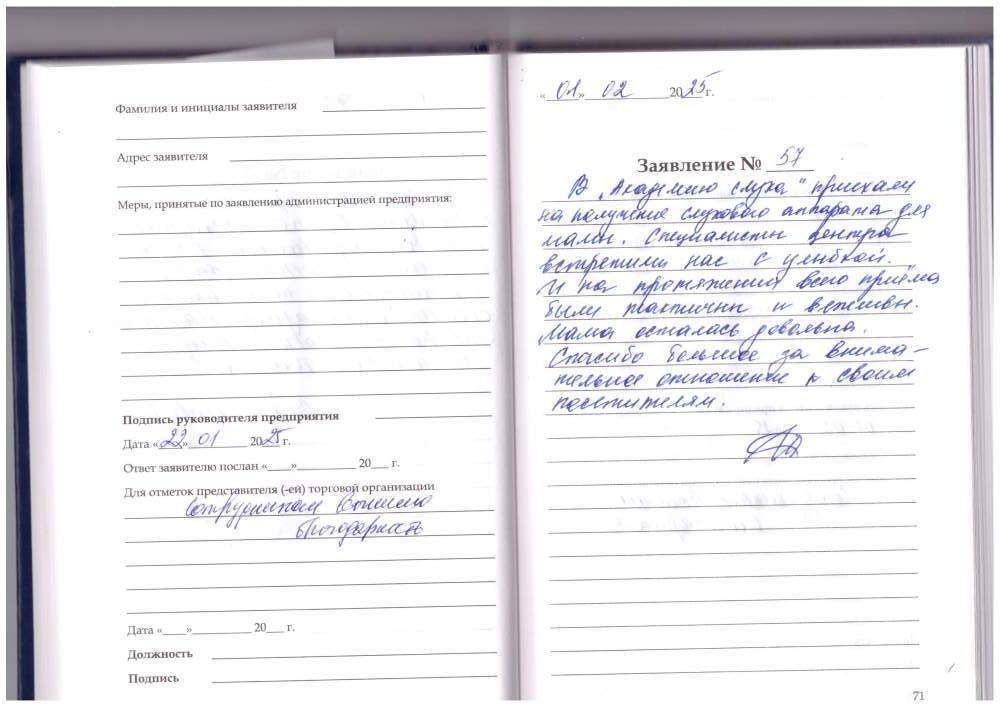 Фамилия и инициалы заявителя
Адрес заявителя
Меры, принятые по заявлению администрацией предприятия:
Подпись руководителя предприятия
Дата «22» 01 2025 г.
Ответ заявителю послан «___»_________ 20___ г.
Для отметок представителя (-ей) торговой организации
Сотрудникам вынесено
благодарность
Дата «____»__________ 20___ г.
Должность
Подпись
«01» 02 2025 г.
Заявление № 57
В „Академию слуха" приехали
на получение слухового аппарата для
мамы. Специалисты центра
встретили нас с улыбкой.
И на протяжении всего приёма
были тактичны и вежливы.
Мама осталась довольна.
Спасибо большое за внима-
тельное отношение к своим
посетителям.
71